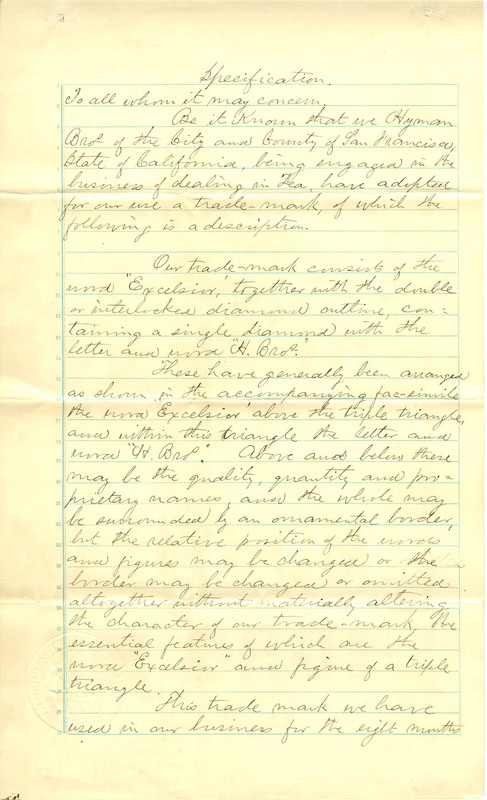 Specification.
To all whom it may concern,
Be it Known that we Hyman
Bros. of the City and County of San Francisco,
State of California, being engaged in the
business of dealing in Tea, have adopted
for our use a trade-mark, of which the
following is a description.
Our trade-mark consists of the
word "Excelsior," together with the double
or interlocked diamond outline, con-
taining a single diamond with the
letter and word "H. Bros."
These have generally been arranged
as shown in the accompanying fac-simile
the word Excelsior above the triple triangle,
and within this triangle the letter and
word "H. Bros." Above and below these
may be the quality, quantity and pro-
prietary names, and the whole may
be surrounded by an ornamental border,
but the relative position of the words
and figures may be changed or the
border may be changed or omitted
altogether without materially altering
the character of our trade-mark, the
essential features of which are the
word "Excelsior" and figure of a triple
triangle.
This trade mark we have
used in our business for the eight months